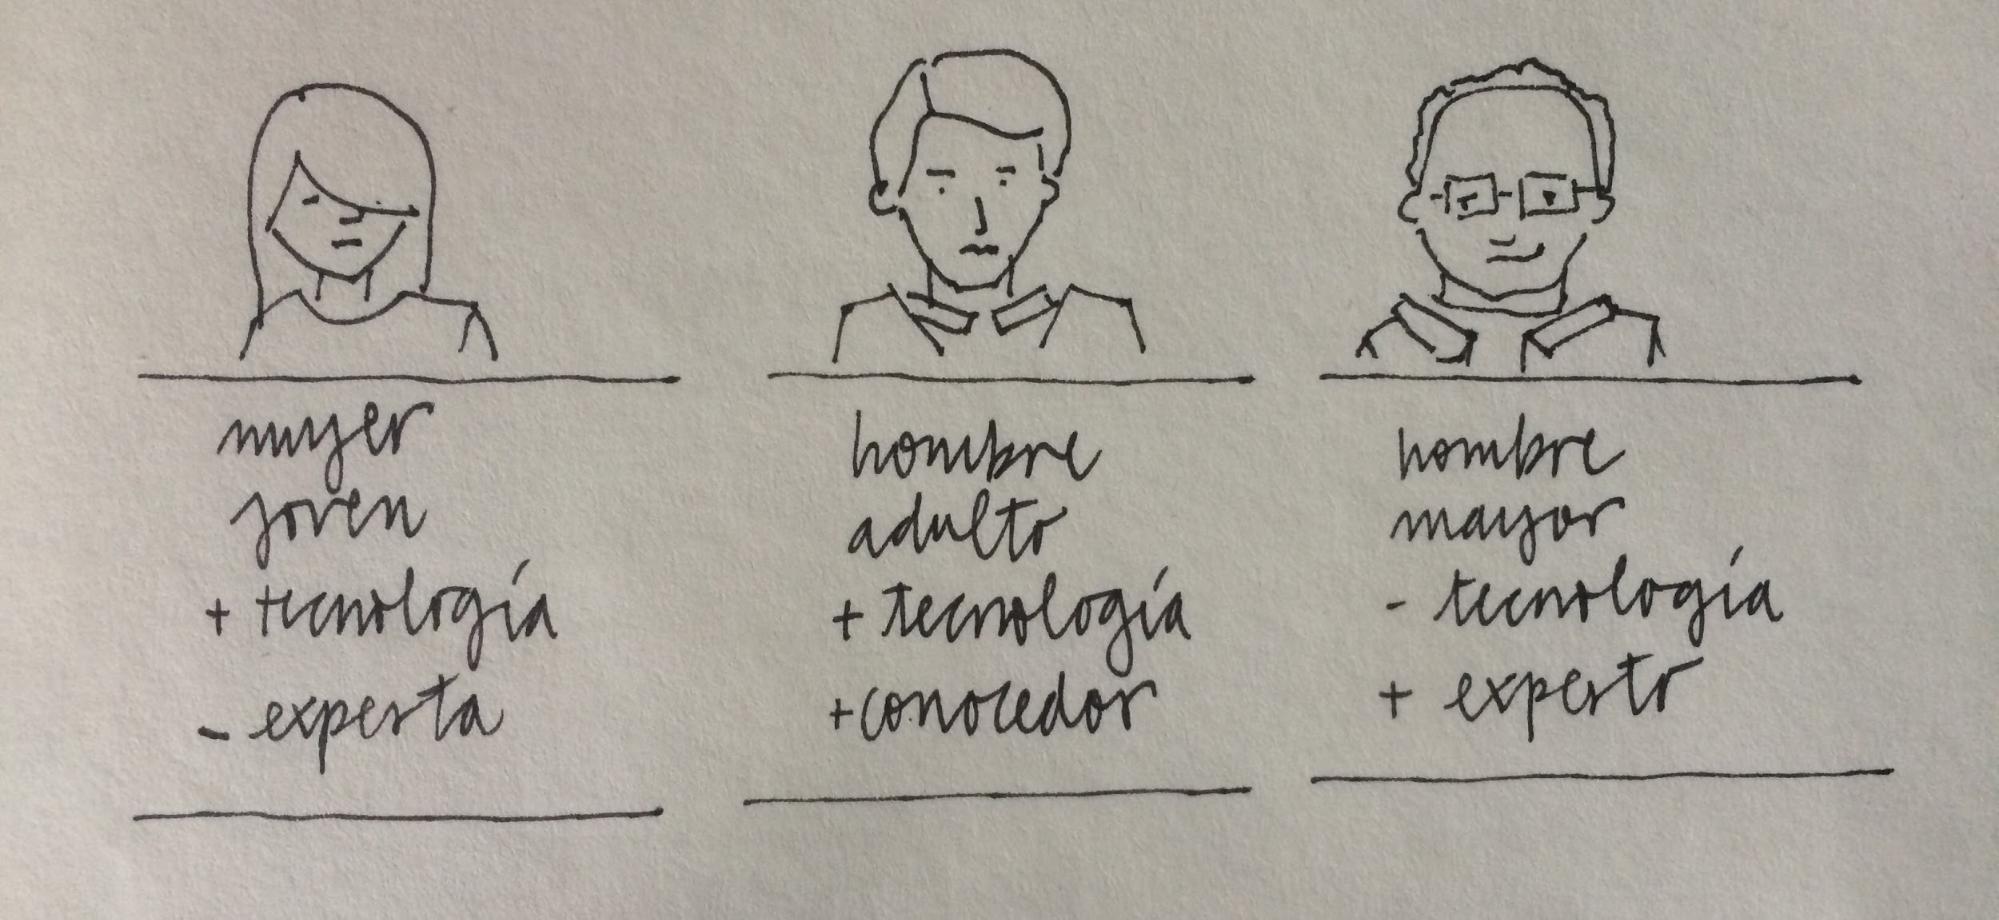 mujer
joven
+ tecnología
- experta
hombre
adulto
+ tecnología
+conocedor
hombre
mayor
- tecnología
+ experto